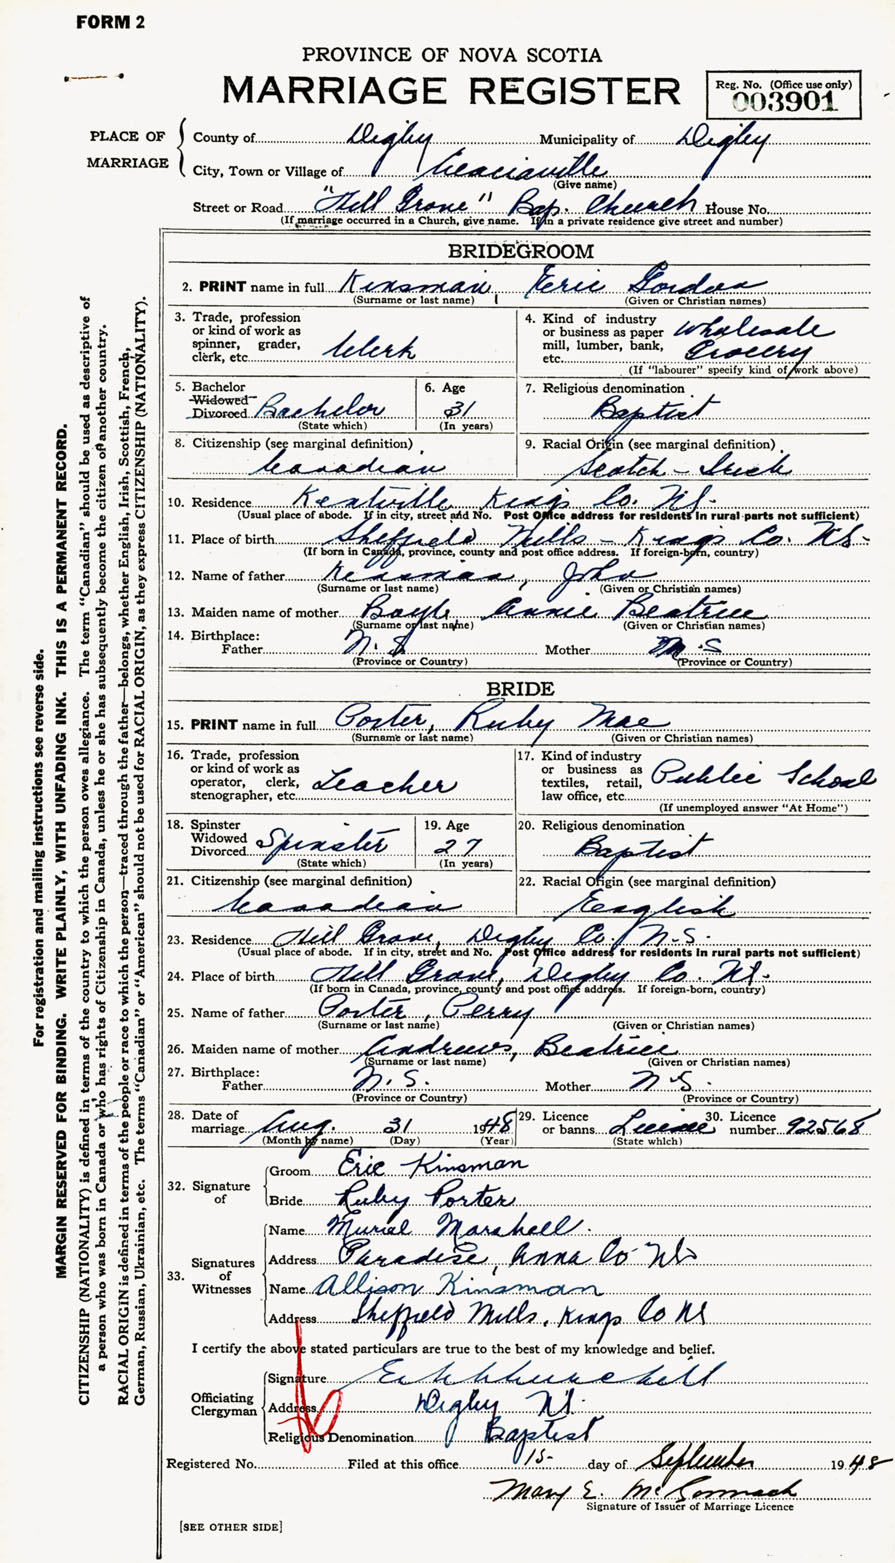 FORM 2
PROVINCE OF NOVA SCOTIA
MARRIAGE REGISTER
Reg. No. (Office use only)
003901
PLACE OF MARRIAGE
County of Digby Municipality of Digby
City, Town or Village of Acaciaville
(Give name)
Street or Road "Hill Grove" Bap. Church House No.
(If marriage occurred in a Church, give name. If in a private residence give street and number)
BRIDEGROOM
2. PRINT name in full Kinsman Eric Gordon
(Surname or last name) (Given or Christian names)
3. Trade, profession or kind of work as spinner, grader, clerk, etc. Clerk
4. Kind of industry or business as paper mill, lumber, bank, etc. Wholesale Grocery
(If "labourer" specify kind of work above)
5. Bachelor Widowed Divorced Bachelor
(State which)
6. Age 31
(In years)
7. Religious denomination
Baptist
8. Citizenship (see marginal definition)
Canadian
9. Racial Origin (see marginal definition)
Scotch - Irish
10. Residence Kentville Kings Co. NS.
(Usual place of abode. If in city, street and No. Post Office address for residents in rural parts not sufficient)
11. Place of birth Sheffield Mills - Kings Co. NS-
(If born in Canada, province, county and post office address. If foreign-born, country)
12. Name of father Kinsman, John
(Surname or last name) (Given or Christian names)
13. Maiden name of mother Annie Beatrice
(Surname or last name) (Given or Christian names)
14. Birthplace:
Father N.S Mother N.S
(Province or Country) (Province or Country)
BRIDE
15. PRINT name in full Porter, Ruby Mae
(Surname or last name) (Given or Christian names)
16. Trade, profession or kind of work as operator, clerk, stenographer, etc. Teacher
17. Kind of industry or business as textiles, retail, law office, etc. Public School
(If unemployed answer "At Home")
18. Spinster Widowed Divorced Spinster
(State which)
19. Age 27
(In years)
20. Religious denomination
Baptist
21. Citizenship (see marginal definition)
Canadian
22. Racial Origin (see marginal definition)
English
23. Residence Hill Grove, Digby Co. N.S.
(Usual place of abode. If in city, street and No. Post Office address for residents in rural parts not sufficient)
24. Place of birth Hill Grove, Digby Co. NS.
(If born in Canada, province, county and post office address. If foreign-born, country)
25. Name of father Porter, Perry
(Surname or last name) (Given or Christian names)
26. Maiden name of mother Andrews, Beatrice
(Surname or last name) (Given or Christian names)
27. Birthplace:
Father N.S. Mother N.S.
(Province or Country) (Province or Country)
28. Date of marriage Aug. 31 1948
(Month by name) (Day) (Year)
29. Licence or banns License
(State which)
30. Licence number 92568
32. Signature of
Groom Eric Kinsman
Bride Ruby Porter
33. Signatures of Witnesses
Name Muriel Marshall.
Address Paradise, Anna Co NS
Name Allison Kinsman
Address Sheffield Mills, Kings Co NS
I certify the above stated particulars are true to the best of my knowledge and belief.
Officiating Clergyman
Signature Churchill
Address Digby NS.
Religious Denomination Baptist
Registered No. Filed at this office 15- day of September 1948
Mary E. McCormack
Signature of Issuer of Marriage Licence
[SEE OTHER SIDE]
For registration and mailing instructions see reverse side.
MARGIN RESERVED FOR BINDING. WRITE PLAINLY, WITH UNFADING INK. THIS IS A PERMANENT RECORD.
CITIZENSHIP (NATIONALITY) is defined in terms of the country to which the person owes allegiance. The term "Canadian" should be used as descriptive of
a person who was born in Canada or who has rights of Citizenship in Canada, unless he or she has subsequently become the citizen of another country.
RACIAL ORIGIN is defined in terms of the people or race to which the person—traced through the father—belongs, whether English, Irish, Scottish, French,
German, Russian, Ukrainian, etc. The terms "Canadian" or "American" should not be used for RACIAL ORIGIN, as they express CITIZENSHIP (NATIONALITY).